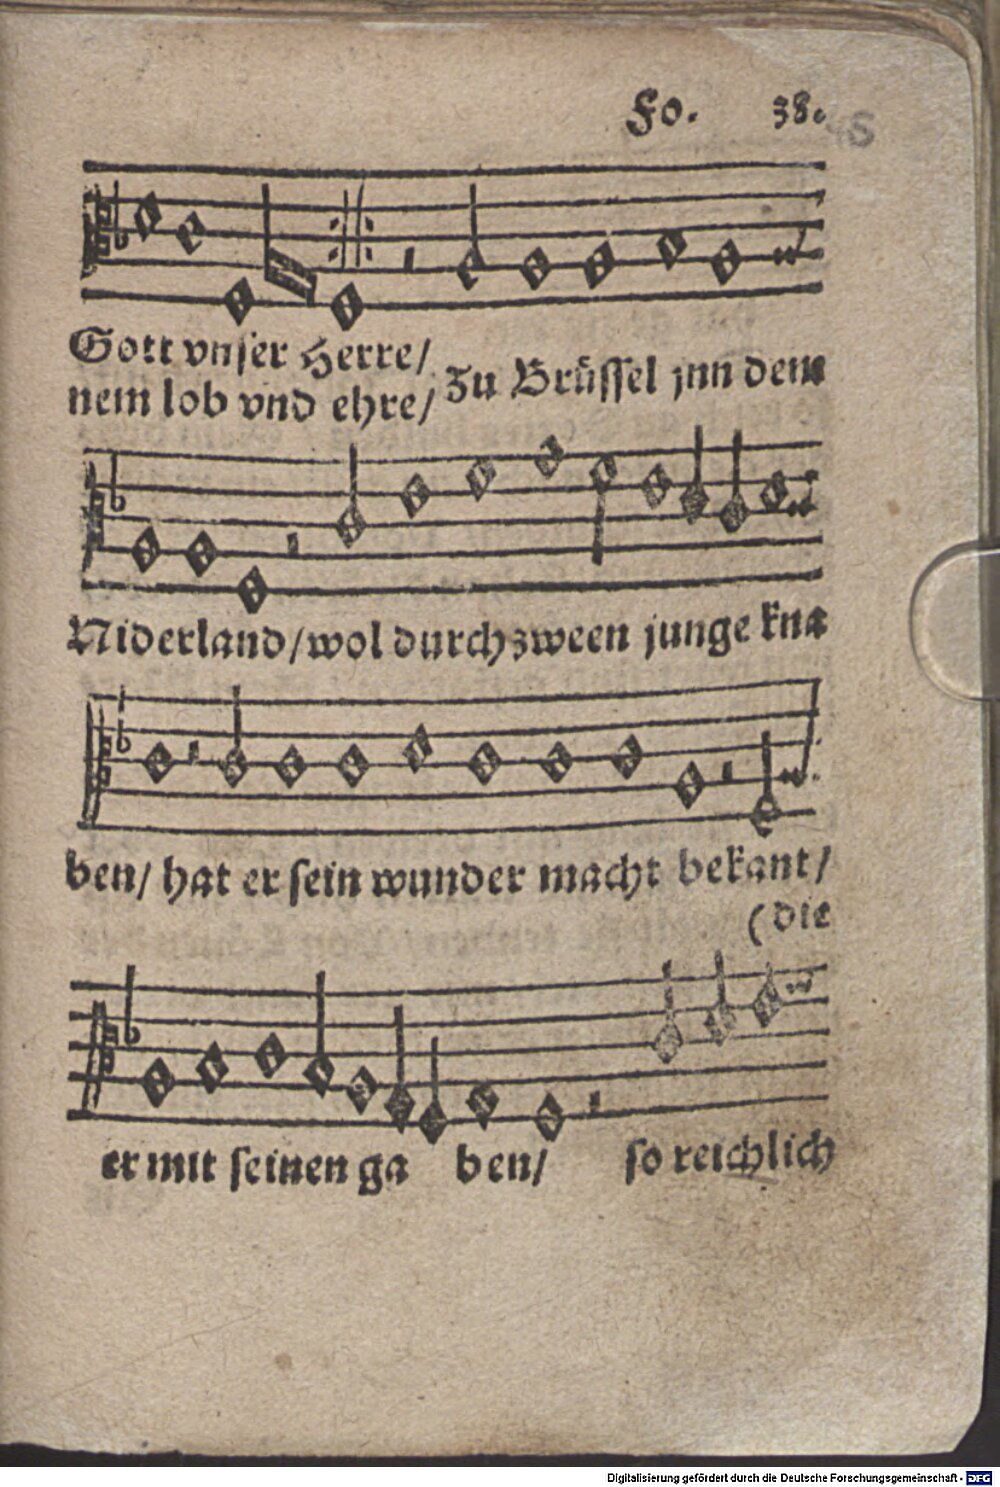 Fo. 38.
Gott vnser Herre/
nem lob vnd ehre/ zu Brüssel jnn dem
Niderland/wol durch zween junge kna
ben/ hat er sein wunder macht bekant/
(die
er mit seinen ga ben/ so reichlich
Digitalisierung gefördert durch die Deutsche Forschungsgemeinschaft - DFG